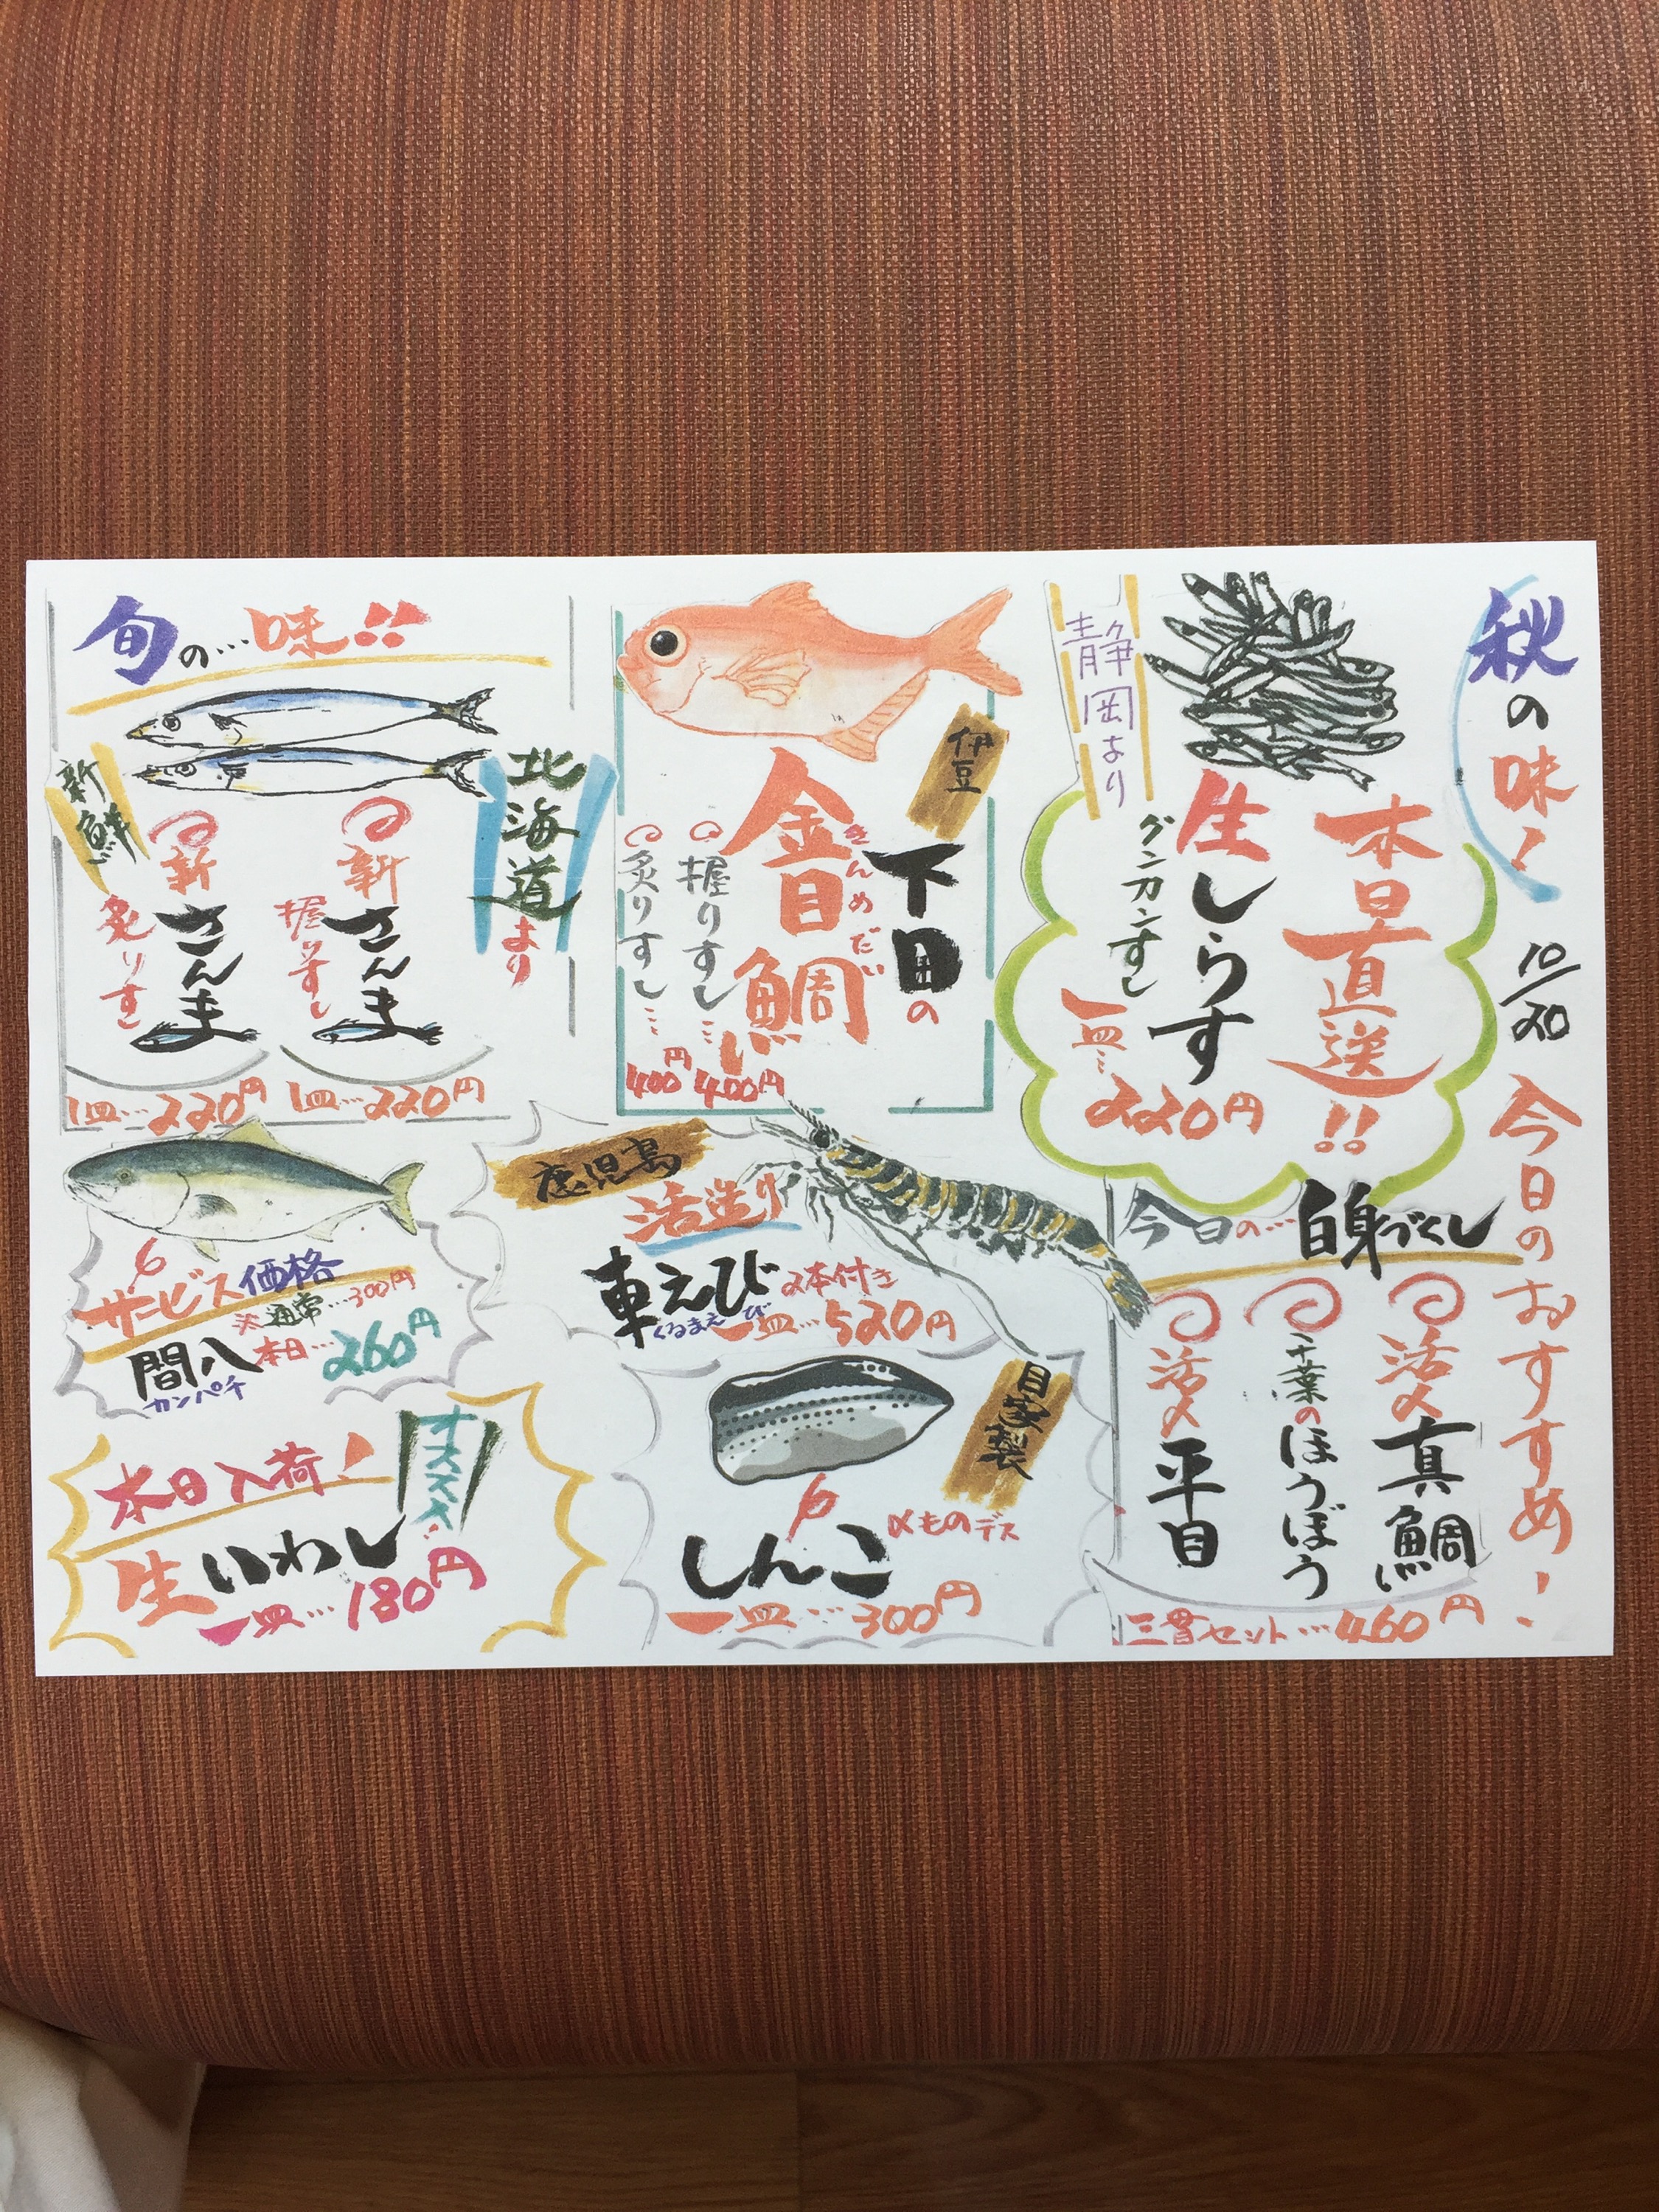 秋の味!
10/20
今日のおすすめ!
静岡より
本日直送!!
生しらす
グンカンすし
一皿…220円
伊豆
下田の
金目鯛
きんめだい
握りすし…400円
炙りすし…400円
旬の…味!!
北海道より
新鮮
新さんま
握りすし
1皿…220円
新さんま
炙りすし
1皿…220円
今日の…白身づくし
活〆真鯛
千葉のほうぼう
活〆平目
三貫セット…460円
鹿児島
活造り
車えび
くるまえび
2本付き
一皿…520円
自家製
しんこ
〆ものデス
一皿…300円
サービス価格
※通常…300円
間八
カンパチ
本日…260円
本日入荷!
オススメ!
生いわし
一皿…180円